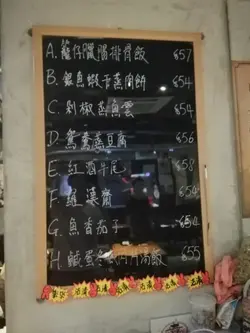 A. 籠仔臘腸排骨飯 $57
B. 銀魚蝦干蒸肉餅 $54
C. 剁椒蒸魚雲 $54
D. 鴛鴦蒸豆腐 $56
E. 紅酒牛尾 $58
F. 羅漢齋 $54
G. 魚香茄子 $54
H. 鹹蛋 飯 $55